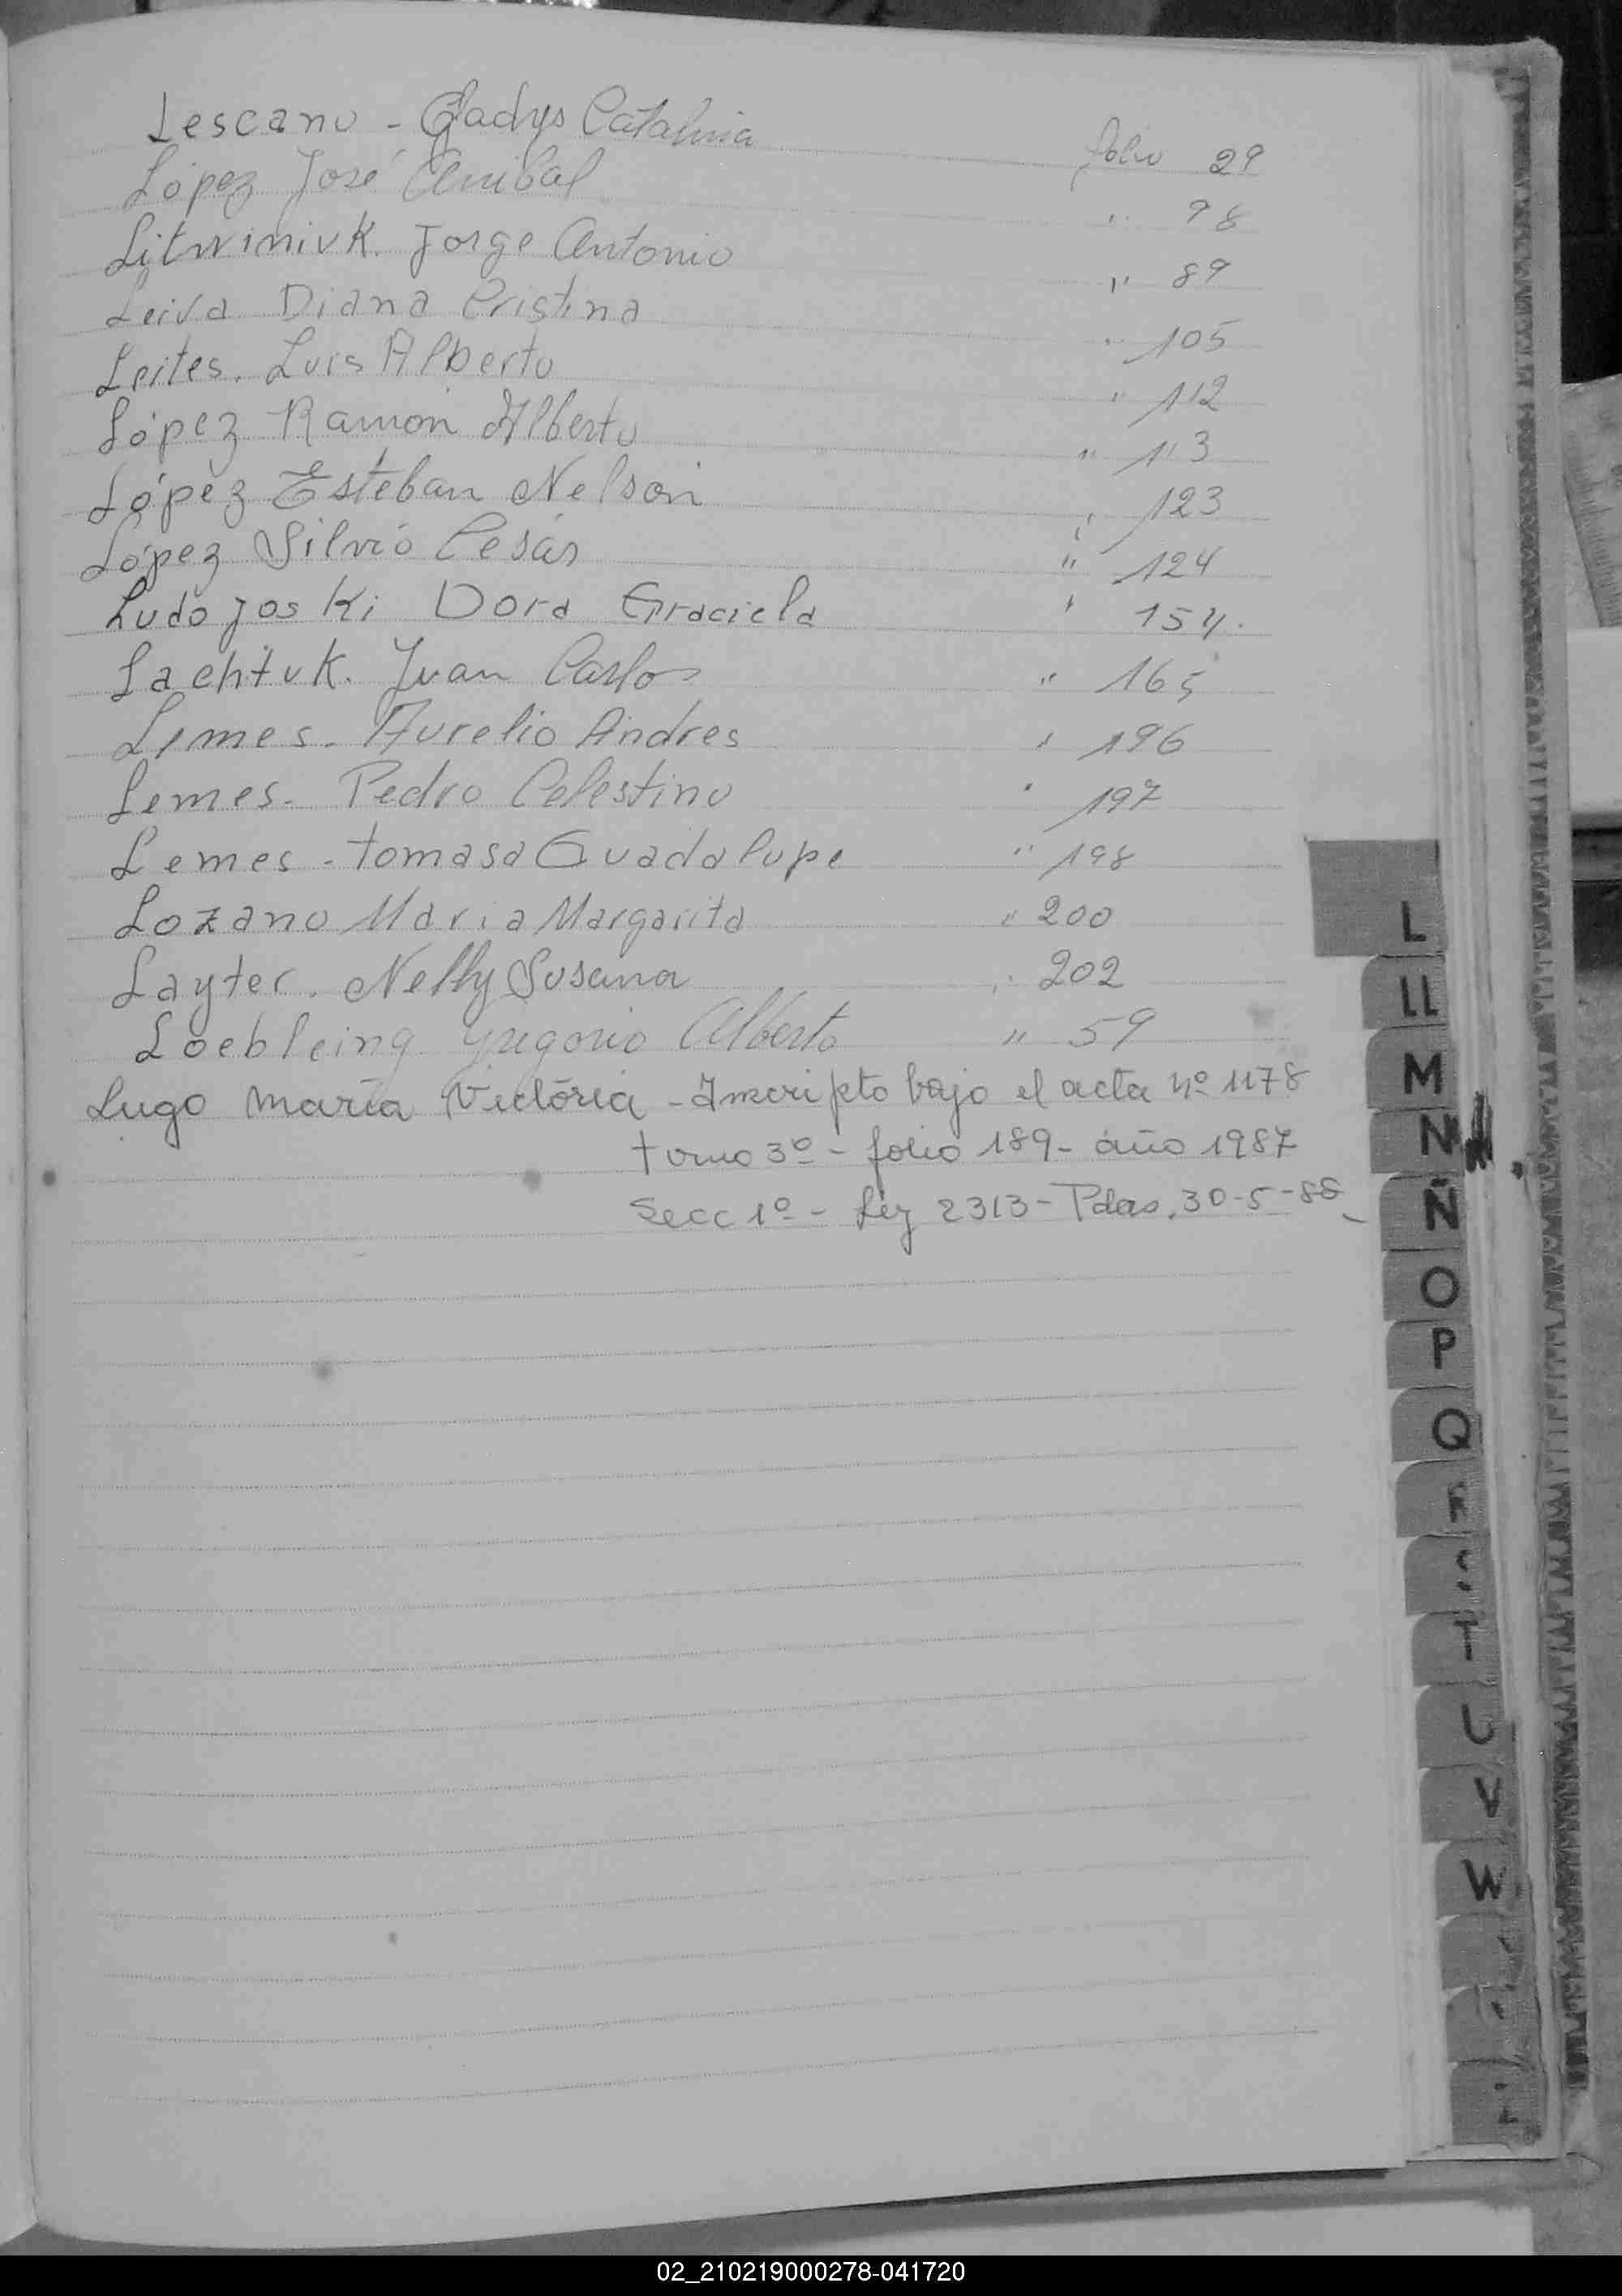 Lescano - Gladys Catalina folio 29
López José Anibal " 98
Litwiniuk. Jorge Antonio " 89
Leiva Diana Cristina " 105
Leites. Luis Alberto " 112
López Ramón Alberto " 113
López Esteban Nelson " 123
López Silvio Cesár " 124
Ludojoski Dora Graciela " 154.
Lachtuk. Juan Carlos " 165
Lemes. Aurelio Andres " 196
Lemes. Pedro Celestino " 197
Lemes - tomasa Guadalupe " 198
Lozano Maria Margarita " 200
Layter. Nelly Susana " 202
Loebleing Gregorio Alberto " 59
Lugo María Victória - Inscripto bajo el acta nº 1178
tomo 3º - folio 189 - año 1987
Secc 1º - Ley 2313 - Pdas. 30-5-88
L
LL
M
N
Ñ
O
P
Q
R
S
T
U
V
W
02_210219000278-041720